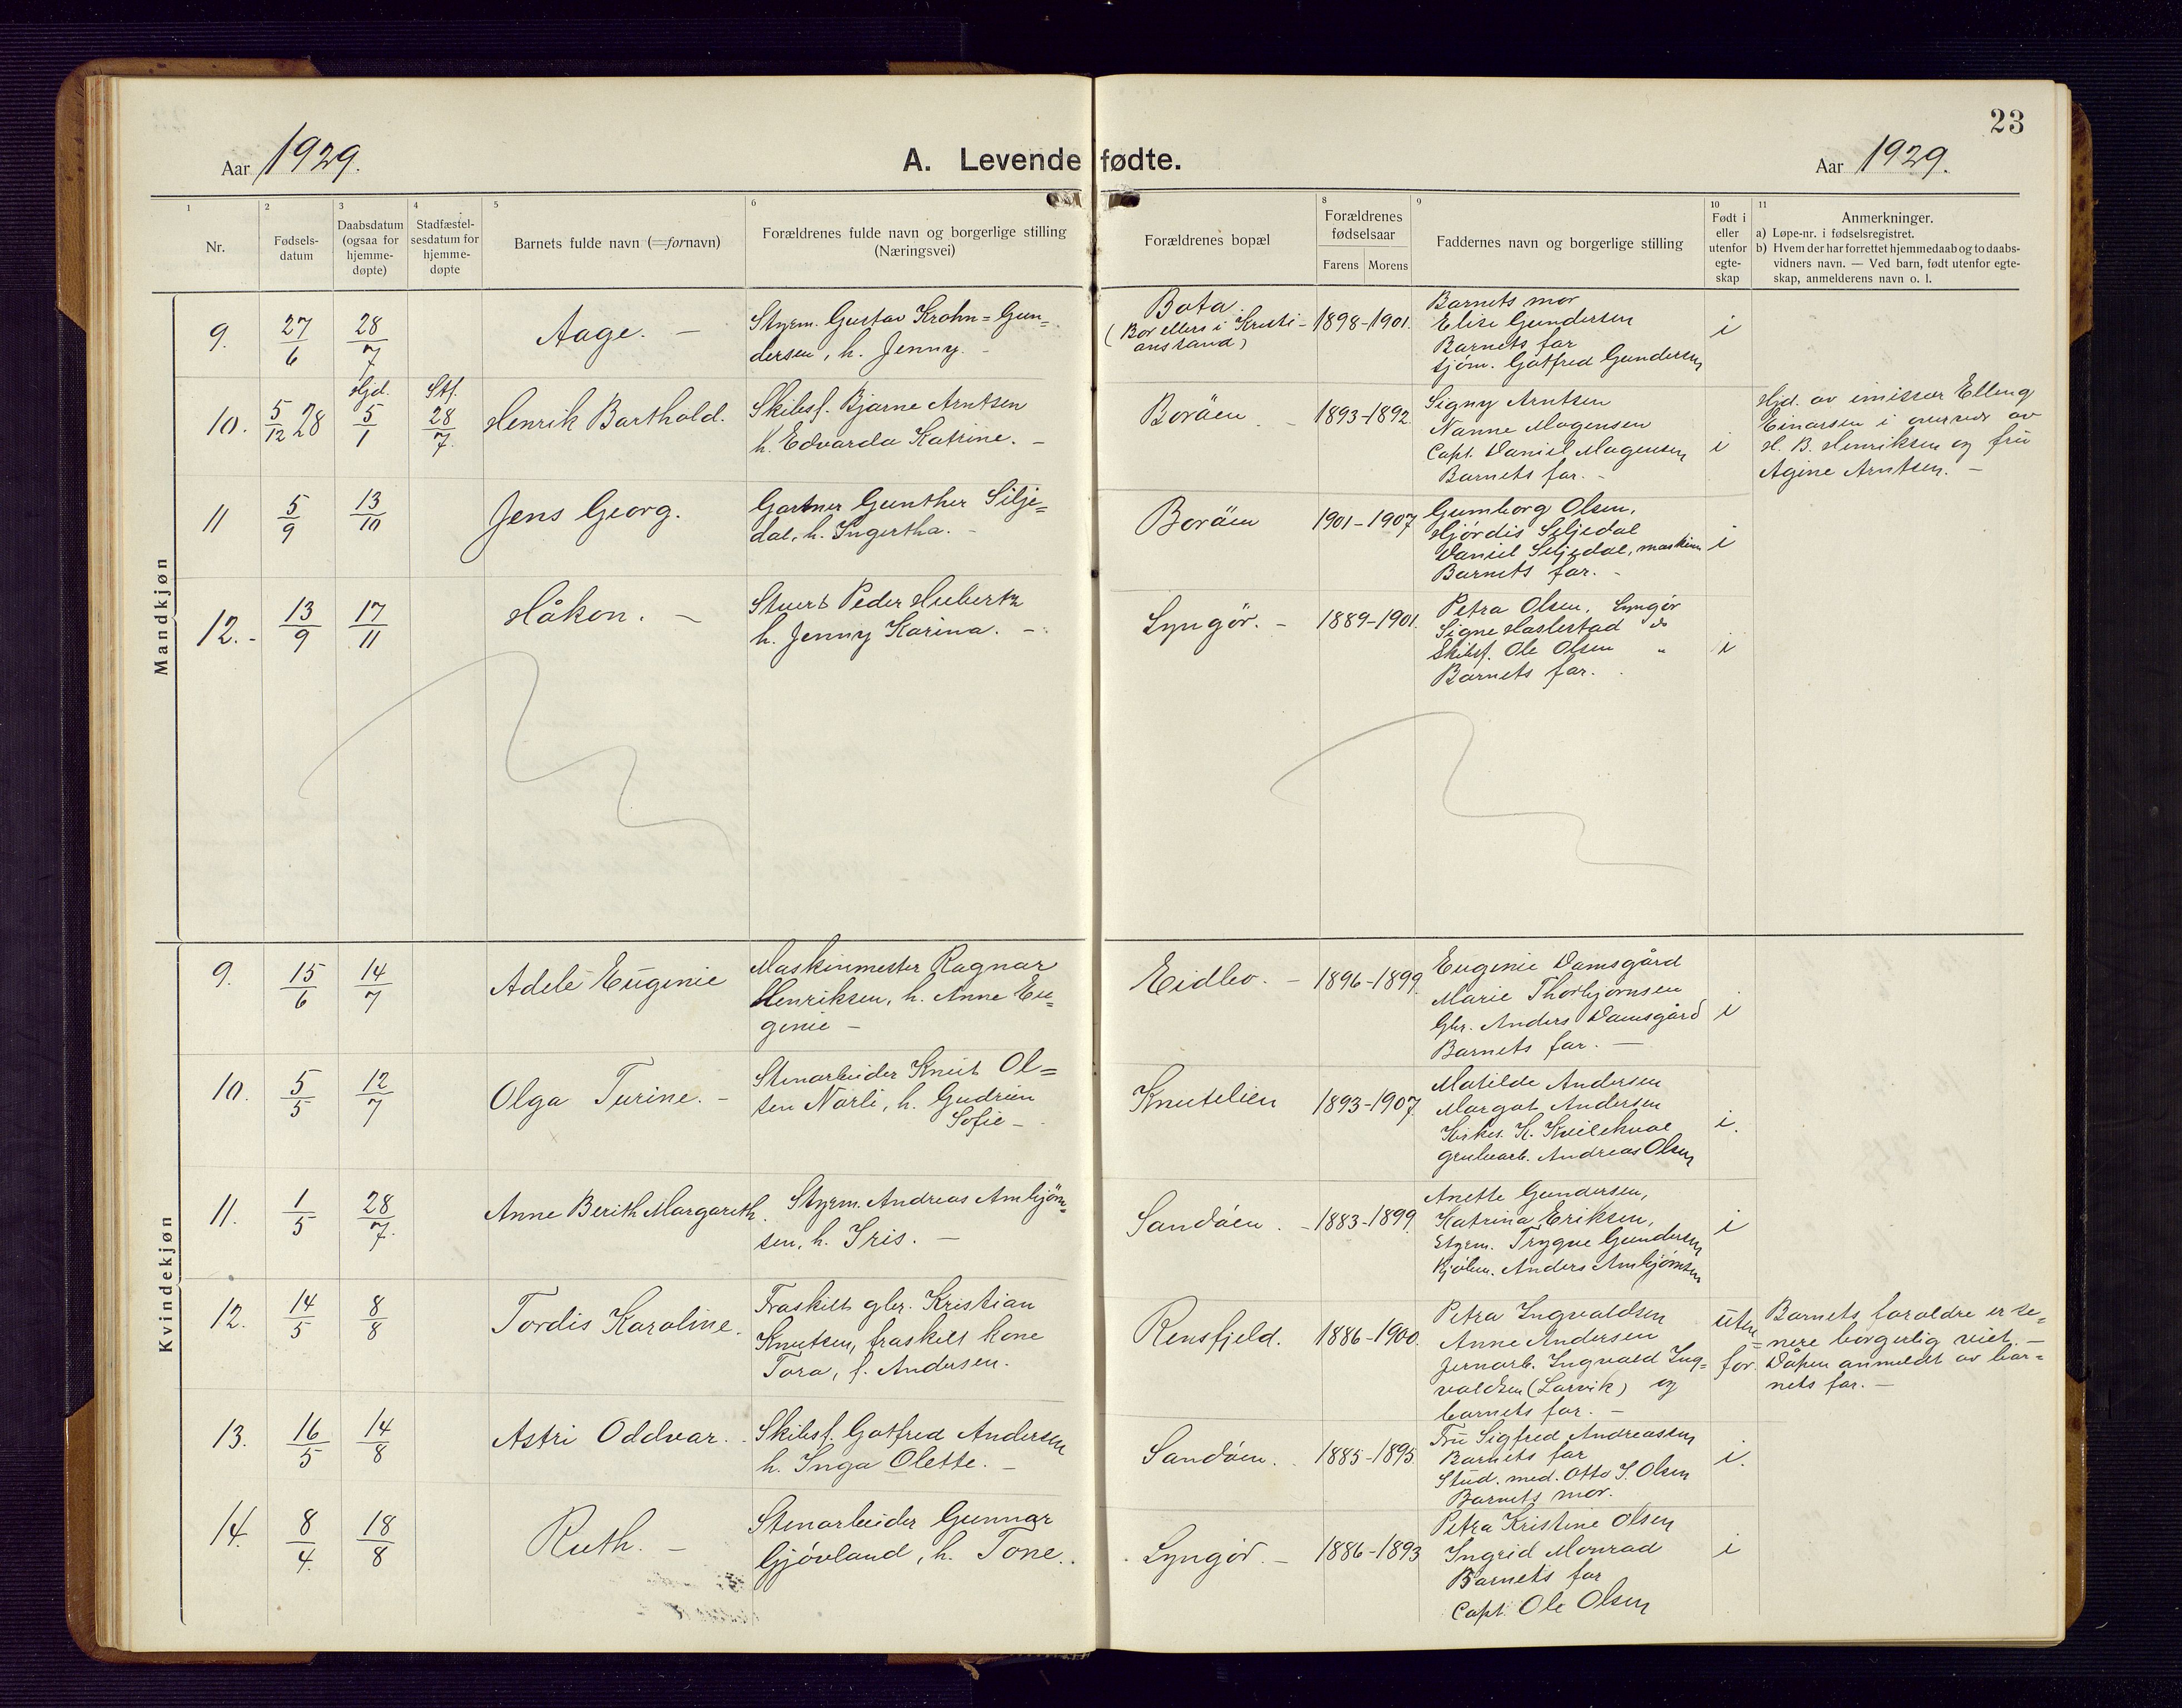 23
Aar 1929.
A. Levende fødte.
Aar 1929.
1 2 3 4 5 6 8 9 10 11
Nr.
Fødsels-
datum
Daabsdatum
(ogsaa for
hjemme-
døpte)
Stadfæstel-
sesdatum for
hjemme-
døpte
Barnets fulde navn (=fornavn)
Forældrenes fulde navn og borgerlige stilling
(Næringsvei)
Forældrenes bopæl
Forældrenes
fødselsaar
Farens Morens
Faddernes navn og borgerlige stilling
Født i
eller
utenfor
egte-
skap
Anmerkninger.
a) Løpe-nr. i fødselsregistret.
b) Hvem der har forrettet hjemmedaab og to daabs-
vidners navn. — Ved barn, født utenfor egte-
skap, anmelderens navn o. l.
Mandkjøn
9. 27/6 28/7 Aage. –
Styrm. Gustav Krohn=Gun=
dersen, h. Jenny. –
Bota
(Bor ellers i Kristi-
ansand)
1898-1901.
Barnets mor
Elise Gundersen
Barnets far
Sjøm. Gotfred Gundersen
i
10. 5/12 28 Hjd. 5/1 Stf. 28/7. Henrik Barthold.
Skibsf. Bjarne Arntsen
h. Edvarda Katrine. –
Borøen –
1893-1892.
Signy Arntsen
Nanne Mogensen
Capt. Daniel Mogensen
Barnets far. –
i
Hjd. av emissær Elling
Einarsen i nærvær av
H. B. Henriksen og fru
Agine Arntsen. –
11 5/9 13/10 Jens Georg.
Gartner Gunther Silje=
dal, h. Ingertha. –
Borøen
1901-1907
Gumborg Olsen,
Hjørdis Seljedal
Daniel Seljedal, maskin
Barnets far. –
i
12. - 13/9 17/11 Håkon. –
Stuert Peder Hubertz
h. Jenny Karina. –
Lyngør. –
1889-1901.
Petra Olsen, Lyngør
Signe Haslestad do
Skibsf. Ole Olsen "
Barnets far.
i
Kvindekjøn
9. 15/6 14/7 Adele Eugenie
Maskinmester Ragnar
Henriksen, h. Anne Eu=
genie –
Eidbo. –
1896-1899.
Eugenie Damsgård
Marie Thorbjørnsen
Gbr. Anders Damsgård
Barnets far. –
i
10. 5/5 12/7 Olga Turine. –
Stenarbeider Knut Ol=
sen Narli, h. Gudrun
Sofie –
Knutelien
1893-1907.
Matilde Andersen
Margot Andersen
Kirkes. K. Kveilekval
grubearb. Andreas Olsen
i.
11. 1/5 28/7. Anne Berith Margareth.
Styrm. Andreas Ambjørn=
sen, h. Iris. –
Sandøen. –
1883-1899.
Anette Gundersen,
Katrina Eriksen,
Styrm. Trygve Gundersen
Kjøbm. Anders Ambjørnsen
i
12. 14/5 8/8 Tordis Karoline.
Fraskilt gbr. Kristian
Knutsen, fraskilt kone
Tora, f. Andersen.
Rensfjeld.
1886-1900.
Petra Ingvaldsen
Anne Andersen
Jernarb. Ingvald Ing=
valdsen (Larvik) og
barnets far. –
uten=
for.
Barnets foreldre er se=
nere borgerlig viet. –
Dåpen anmeldt av bar=
nets far. –
13. 16/5 14/8 Astri Oddvar.
Skibsf. Gotfred Andersen
h. Inga Olette. –
Sandøen.
1885-1895.
Fru Sigfred Andreassen
Barnets far
Stud. med. Otto S. Olsen
Barnets mor.
i.
14. 8/4. 18/8 Ruth. –
Stenarbeider Gunnar
Gjøvland, h. Tone.
Lyngør. –
1886-1893
Petra Kristine Olsen
Ingrid Monrad
Barnets far
Capt. Ole Olsen
i